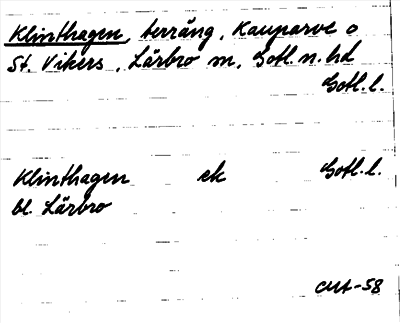 Klinthagen, terräng, Kauparve o
St. Vikers, Lärbro sn, Gotl. n. hd
Gotl. l.
Klinthagen ek Gotl. l.
bl. Lärbro